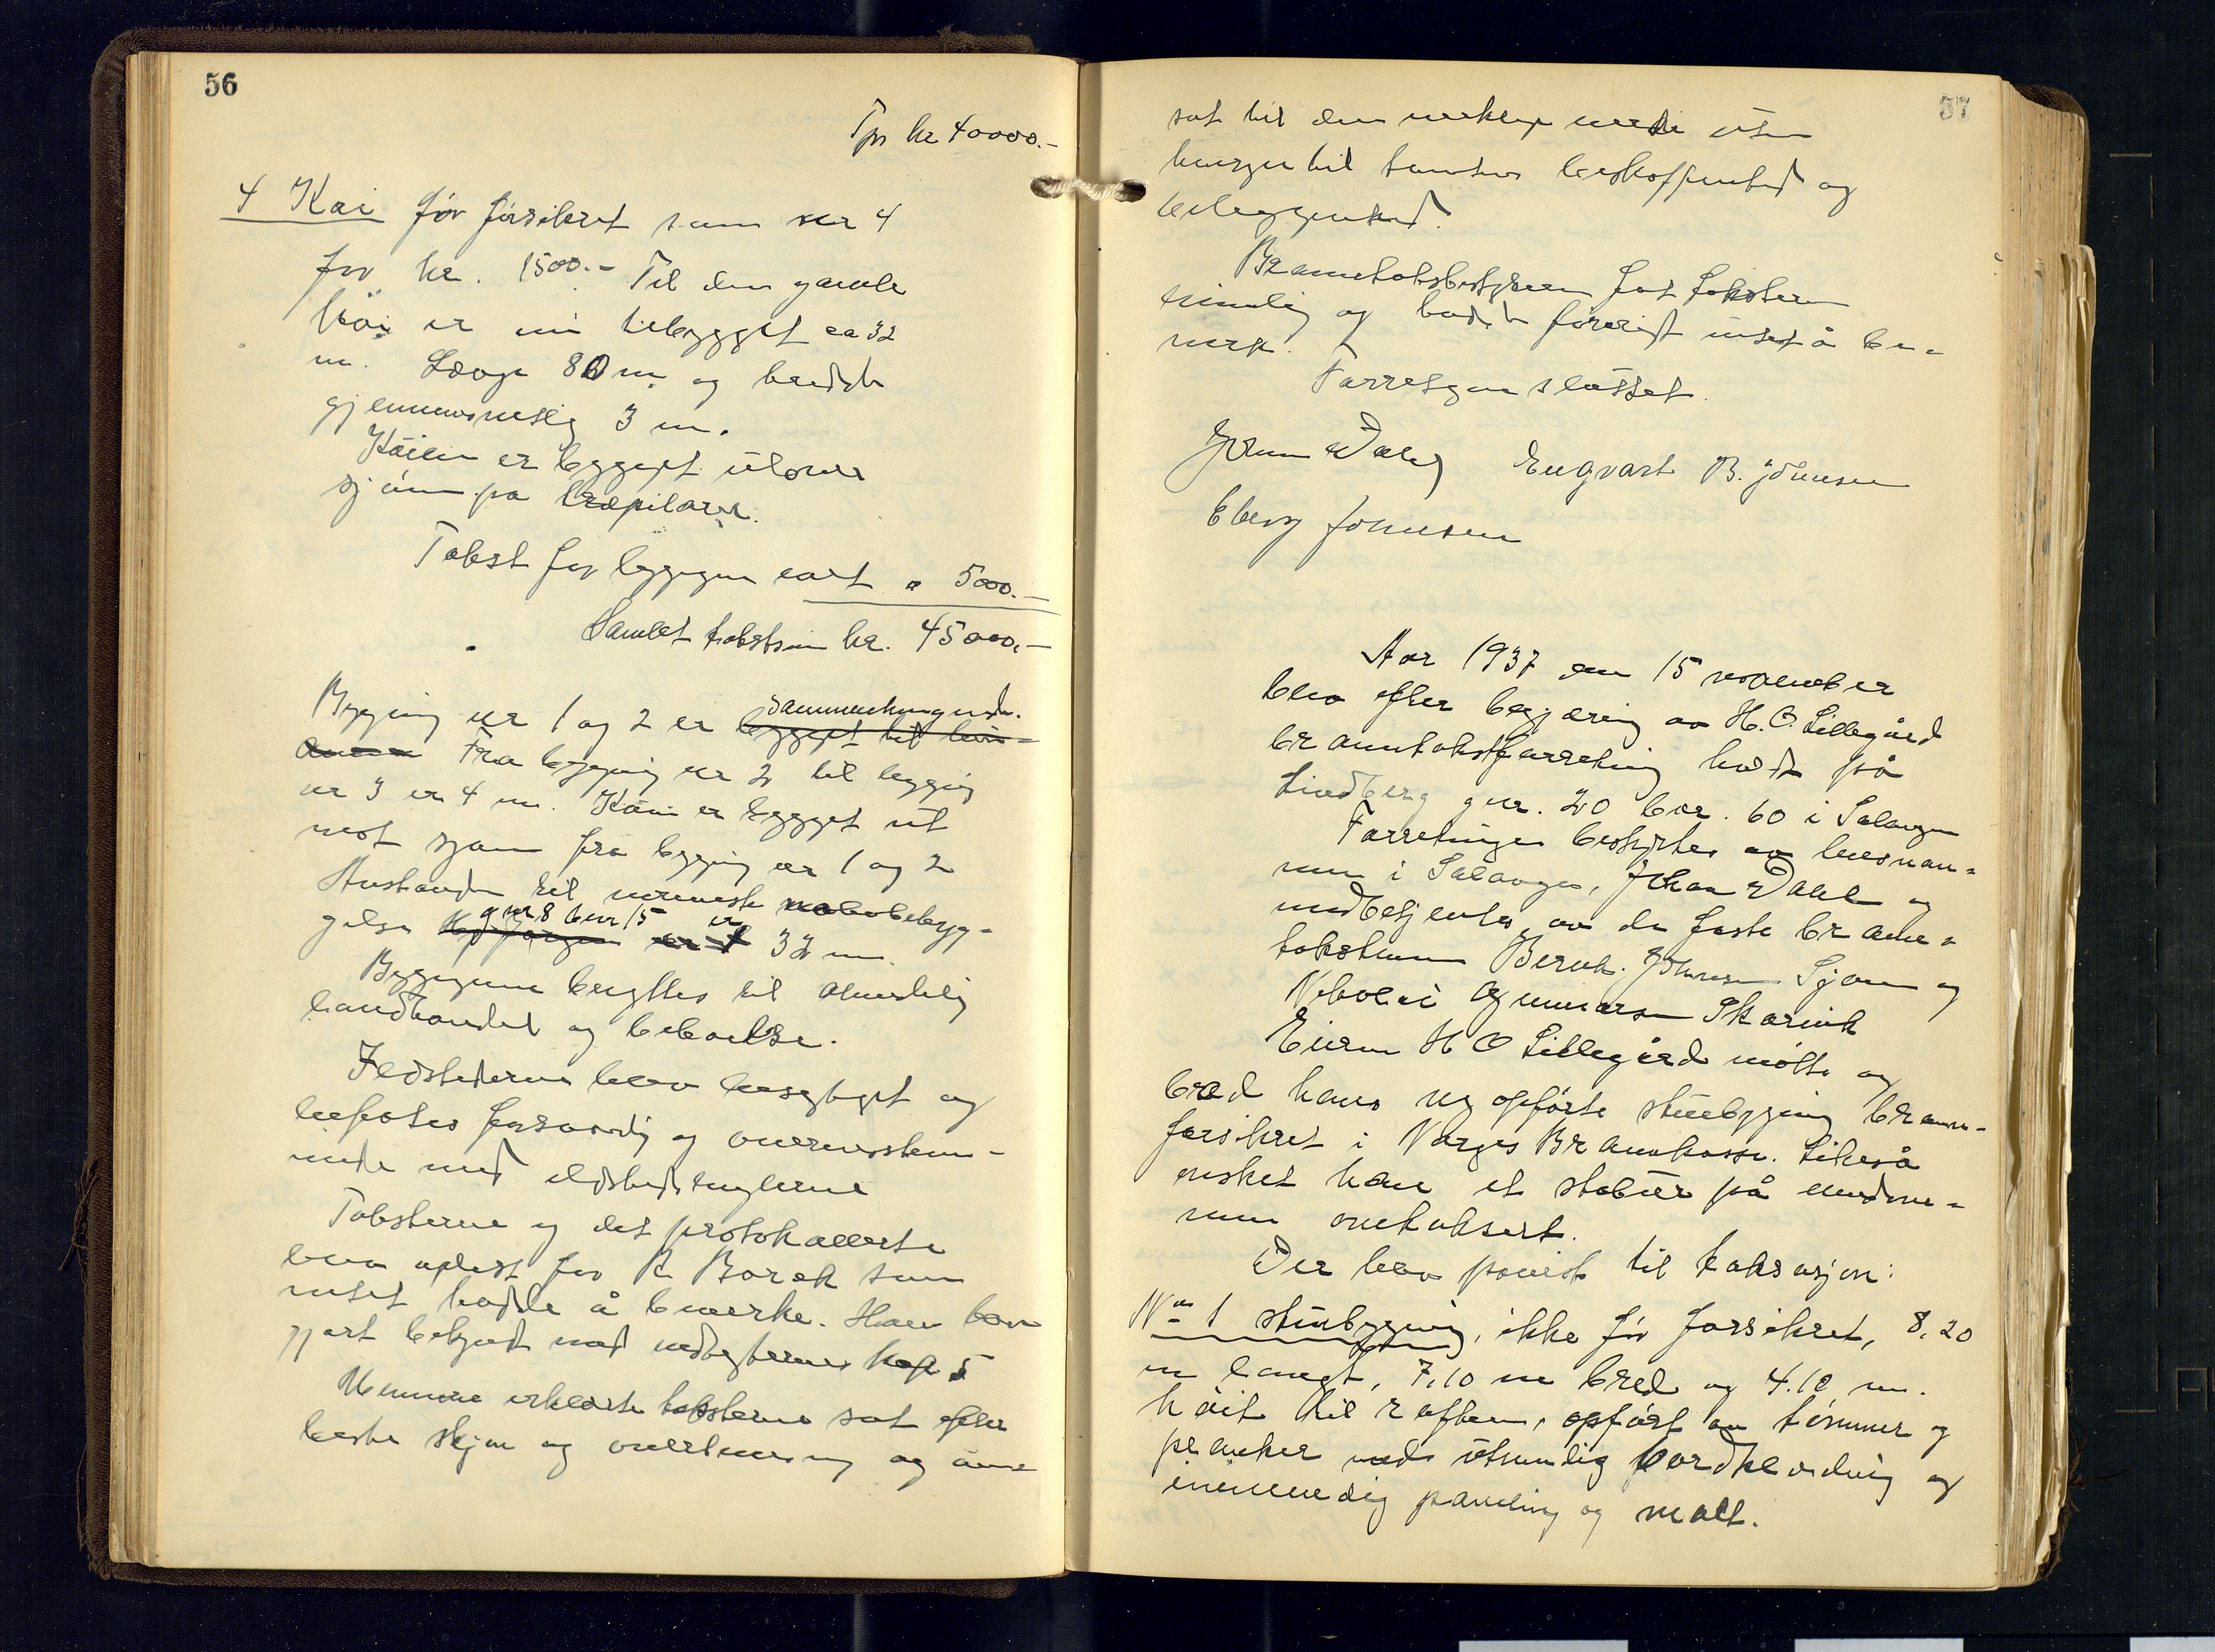 56
Tpr kr 40000.-
4 Kai før försikret som nr 4
for kr. 1500.- Til den gamle
kai er nu tilbygget ca 32
m. Længe 80 m og bredde
gjennemsnitlig 3 m.
Kaien er bygget utover
sjøen på træpilarer.
Takst for byggen satt " 5000.-
Samlet takstsum kr. 45000.-
sammenhengende.
Bygging nr 1 og 2 er bygget til hin-
anen Fra bygging nr 2 til bygging
nr 3 er 4 m. Kaien er bygget ut
mot sjøen fra bygging nr 1 og 2
Avstanden til nærmeste nabobebyg-
gnr 8 bnr 15 er
gelse 32 m.
Byggingene benyttes til almindelig
landhandel og beboelse.
Ildstederne blev besigtiget og
befotes forsvarlig og overensstem-
mende med ildstedsreglerne
Taksterne og det protokollerte
blev oplest for R Borch som
intet hadde å bemerke. Han blev
gjort bekjent med vedtegternes kap 5
Mennene erklærte taksterne sat efter
beste skjøn og overbevisning og
57
sat til den virkelige verdi uten
hensyn til tomtens beskaffenhed og
beliggenhed.
Branntakstbestyreren fant taksten
rimelig og hadde forøvrigt intet å be-
merke.
Forretgen sluttet.
Johan Dahl Engvart B. Johnsen
Eberg Johnsen
Aar 1937 den 15 november
blev efter begjæring av H.O. Lillegård
branntakstforretning holdt på
Lindberg gnr. 20 bnr. 60 i Salangen
Forretningen bestyrtes av lensman-
nen i Salangen, Johan Dahl og
medbetjentes av de faste brann-
takstmenn Bernh. Johnsen Sjøvn og
Nikolai Gunnarsen Skårvik
Eieren H O Lillegård møtte og
bad hans ny opførte stuebygging brann-
forsikret i Norges Brannkasse. Likeså
ønsket han et stabur på eiendom-
men omtaksert.
Der blev påvist til taksasjon:
No 1 stuebygging, ikke før forsikret, 8,20
m langt, 7,10 m bred og 4.10 m.
høit til raften, opført av tømmer og
planker med utvendig bordklædning og
innvendig paneling og malt.